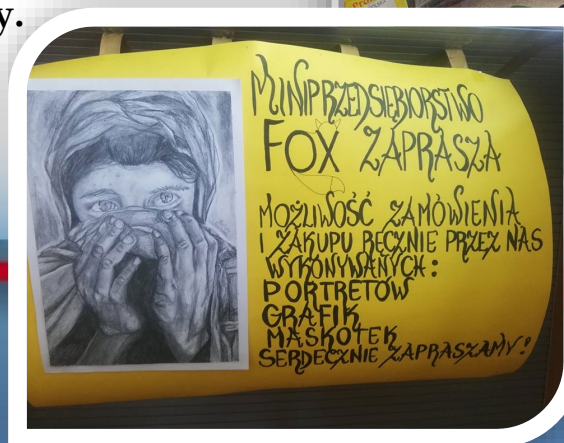 y.
MINIPRZEDSIĘBIORSTWO
FOX ZAPRASZA
MOŻLIWOŚĆ ZAMÓWIENIA
I ZAKUPU RĘCZNIE PRZEZ NAS
WYKONYWANYCH:
PORTRETÓW
GRAFIK
MASKOTEK
SERDECZNIE ZAPRASZAMY!